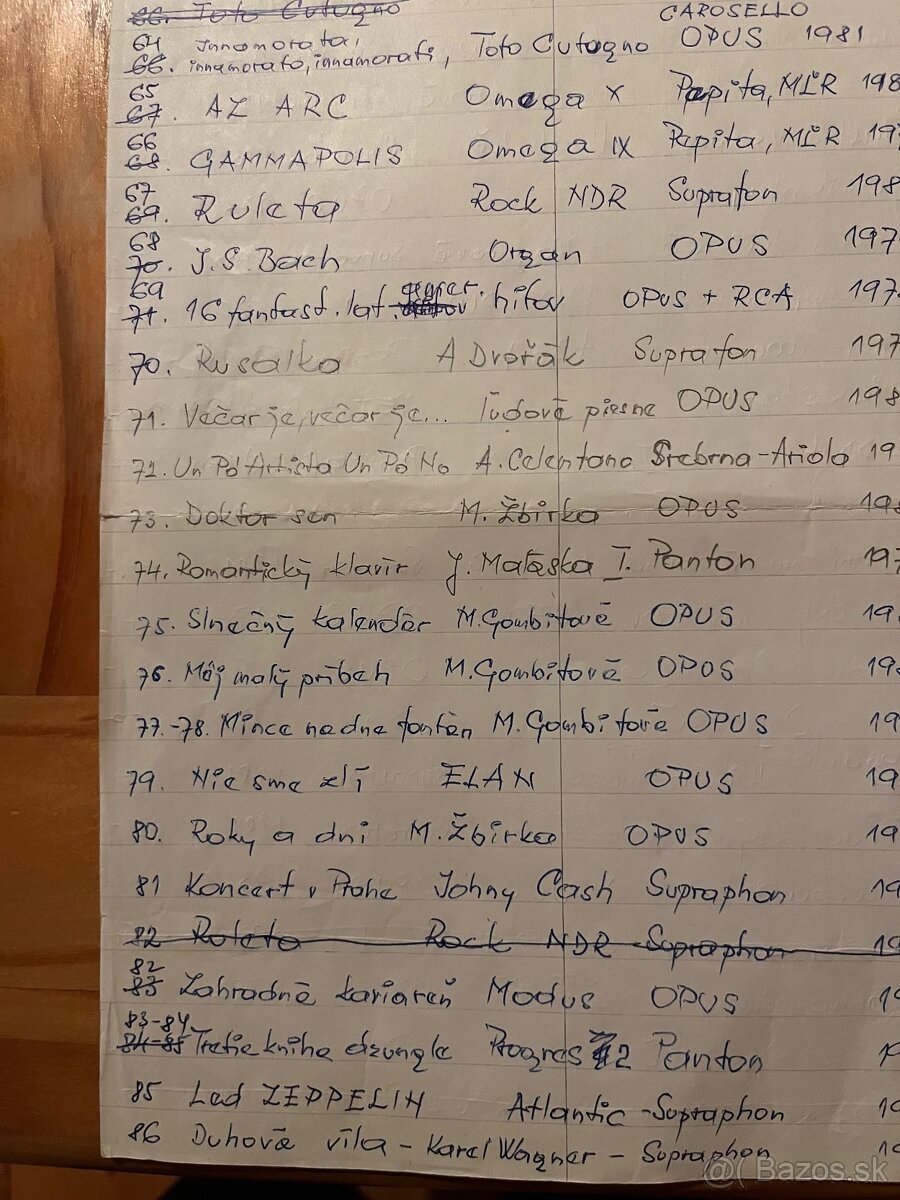 66. Toto Cutugno CAROSELLO
64 Innamorata,
66. innamorato, innamorati, Toto Cutugno OPUS 1981
65
67. AZ ARC Omega X Pepita, MĽR 198
66
68. GAMMAPOLIS Omega IX Pepita, MĽR 197
67
69. Ruleta Rock NDR Suprafon 198
68
70. J.S. Bach Organ OPUS 197
69
71. 16 fantast. lat. amer. hitov OPUS + RCA 197
70. Rusalka A Dvořák Suprafon 197
71. Večar je, večar je... ľudové piesne OPUS 198
72. Un Pó Artista Un Pó No A. Celentano Srebrna-Ariola 19
73. Doktor sen M. Žbirka OPUS 198
74. Romantický klavír J. Malaska I. Panton 197
75. Slnečný kalendár M. Gombitová OPUS 19
76. Môj malý príbeh M. Gombitová OPUS 19
77.-78. Mince na dne fontán M. Gombitová OPUS 19
79. Nie sme zlí ELÁN OPUS 19
80. Roky a dni M. Žbirka OPUS 19
81 Koncert v Prahe Johny Cash Supraphon 19
82 Ruleta Rock NDR Supraphon 19
82
83 Záhradná kaviareň Modus OPUS 19
83-84
84-85 Tretie kniha džungle Progres 2 Panton 19
85 Led ZEPPELIN Atlantic-Supraphon 19
86 Dúhová víla - Karel Wagner - Supraphon 19
@ Bazos.sk